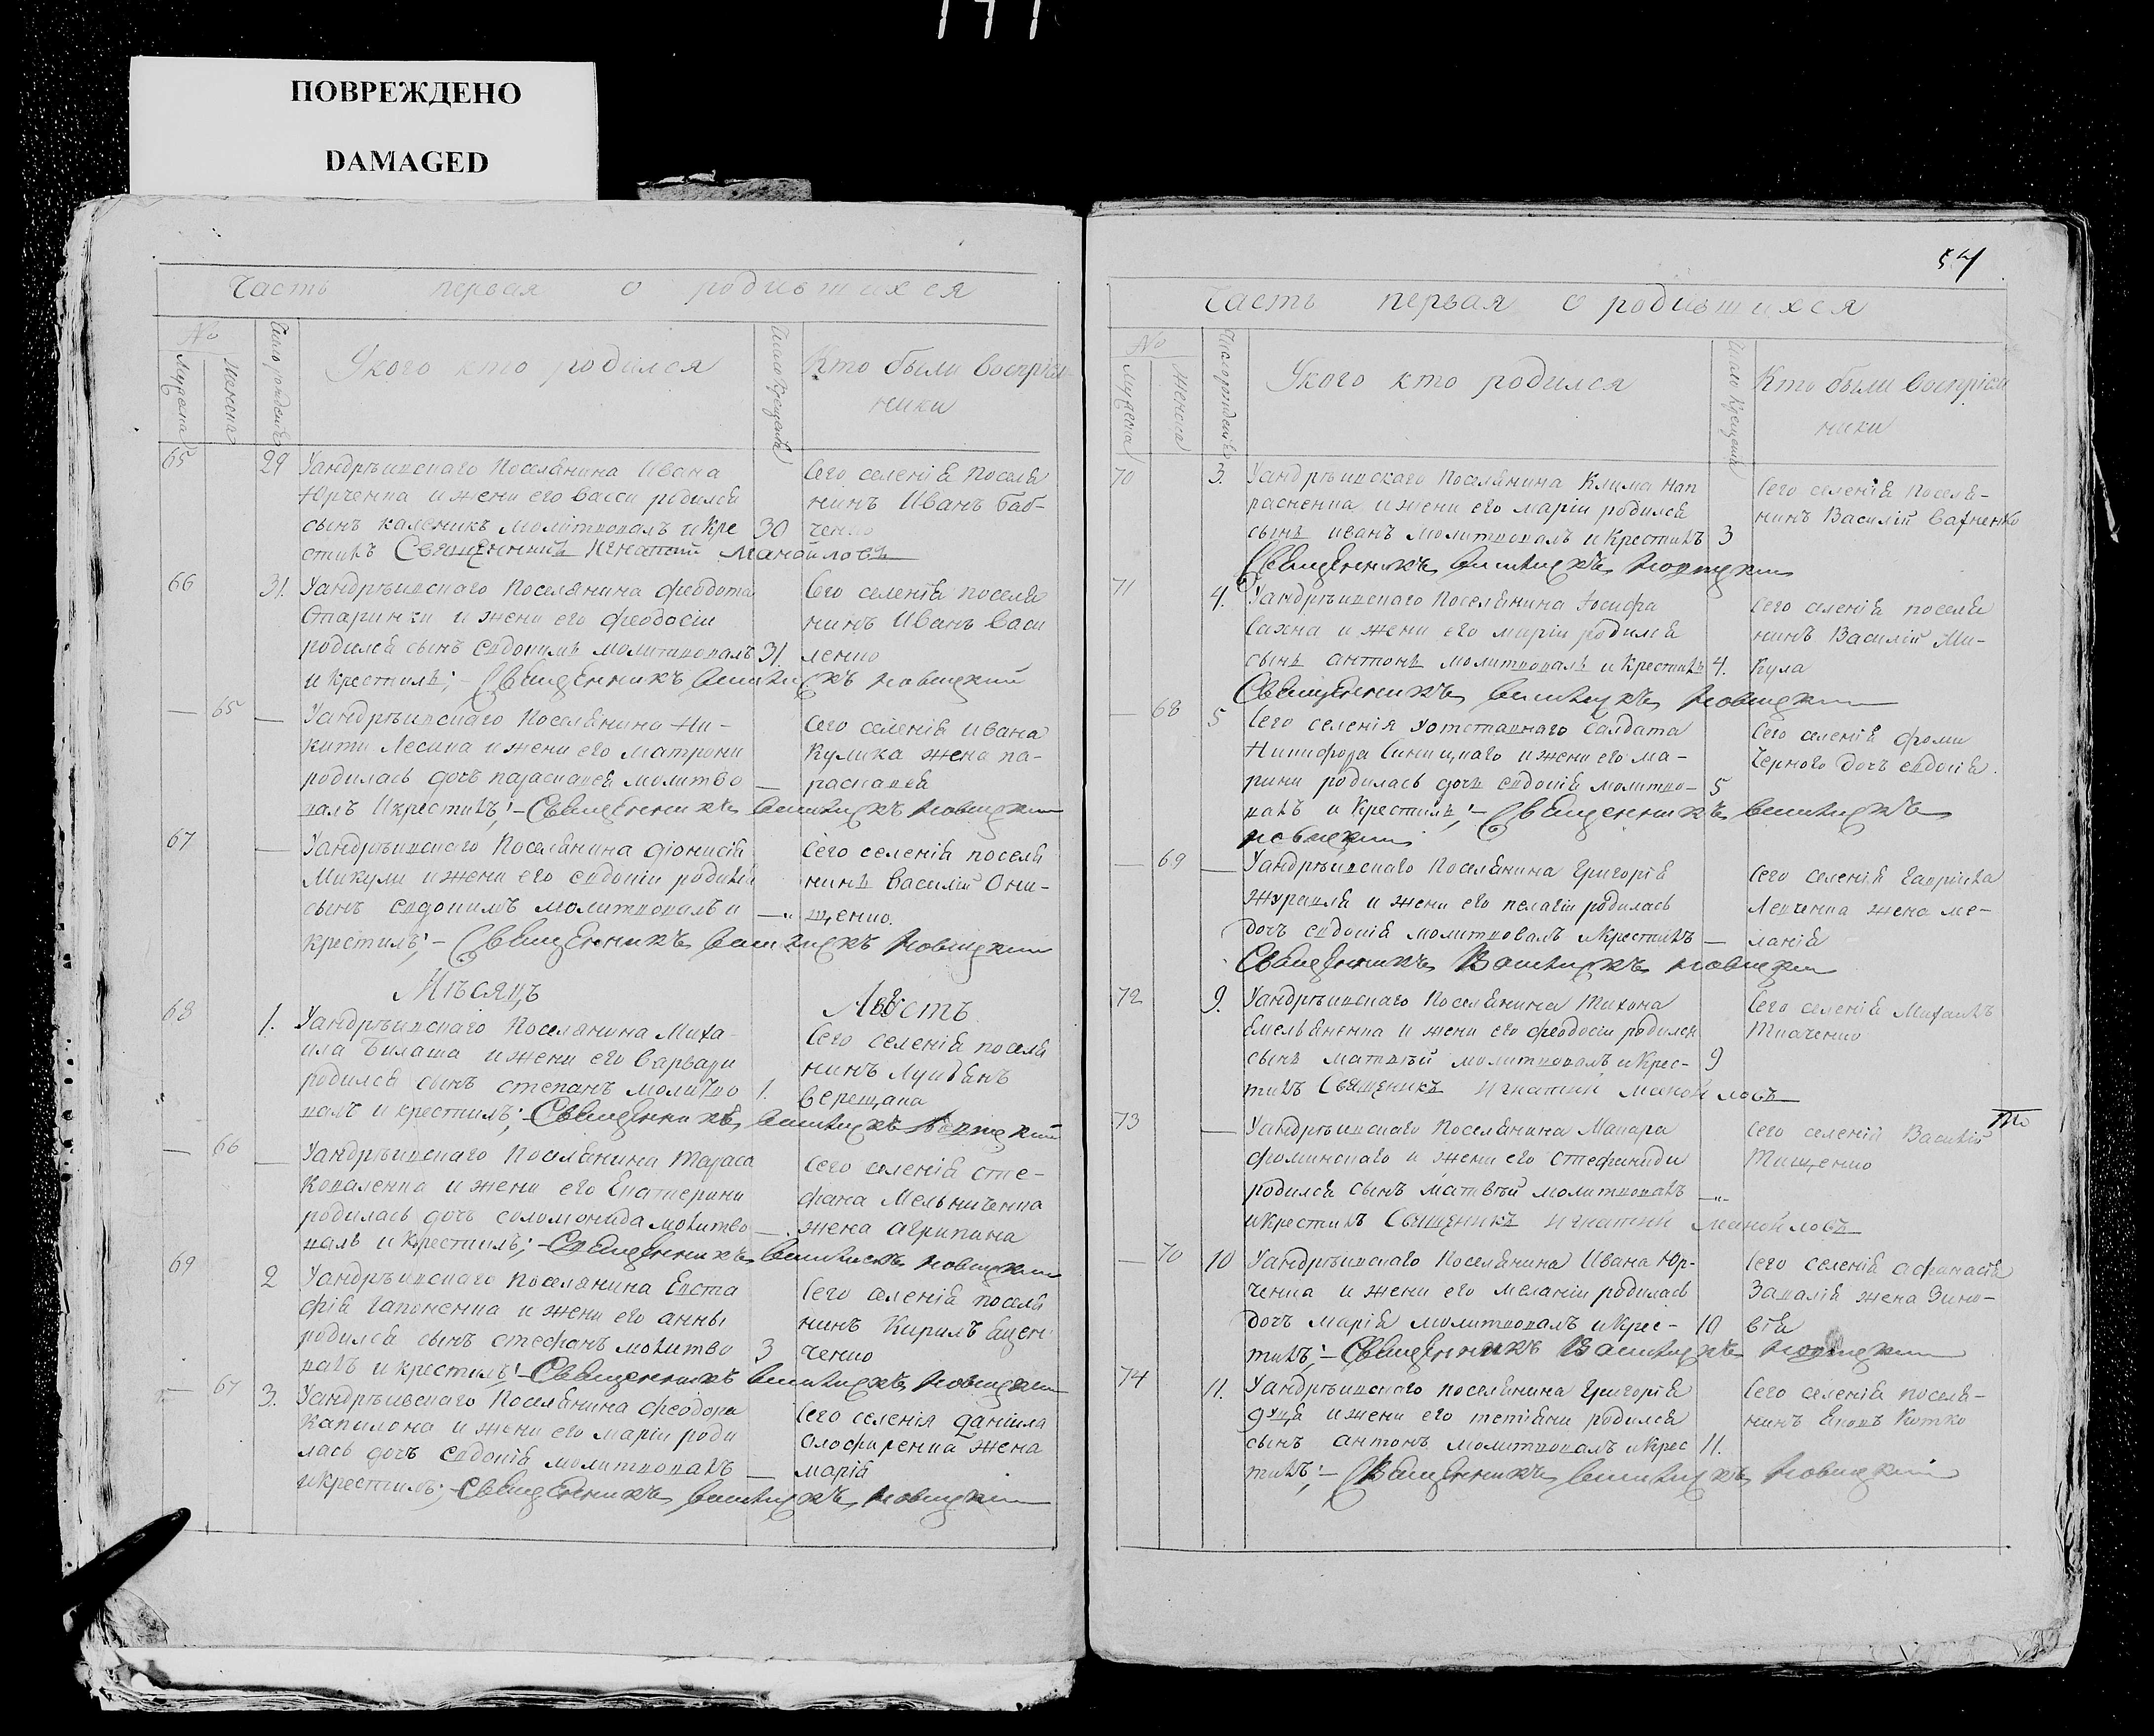 ПОВРЕЖДЕНО
DAMAGED
Часть первая о родившихся
№
Мужеска
Женска
Число рожденія
У кого кто родился
Число крещенія
Кто были восприем
ники
65 29 Уандрѣивскаго Поселянина Ивана
Юрченка и жени его Васси родился
сынъ каленикъ молитвовалъ и Кре 30
стилъ Священникъ Игнатий Манойловъ
Сего селенія Поселя
нинъ Иванъ Баб-
ченко
66 31. Уандрѣивскаго Поселянина Феодота
и жени его Феодосіи
родился сынъ Евдокимъ молитвовалъ 31
и Крестилъ; - Священникъ Новицкий
Сего селенія поселя
нинъ Иванъ Васи
ленко
— 65 — Уандрѣивскаго Поселянина Ни-
кити Лесика и жени его Матрони
родилась дочь параскавея молитво —
валъ и крестилъ; - Священникъ Новицкий
Сего селенія Ивана
Кулика жена па-
раскавея
67 — Уандрѣивскаго Поселянина Діонисія
Микули и жени его Евдокіи родился
сынъ Евдокимъ молитвовалъ и —„
крестилъ; - Священникъ Новицкий
Сего селенія поселя
нинъ Василій Они-
щенко.
Мѣсяцъ Августъ
68 1. Уандрѣивскаго Поселянина Миха-
ила Билаша и жени его Варвари
родился сынъ степанъ молитво 1.
валъ и крестилъ; - Священникъ Новицкий
Сего селенія поселя
нинъ Лукіянъ
Верещака
— 66 — Уандрѣивскаго Поселянина Тараса
Коваленка и жени его Екатерини
родилась дочь соломонида молитво —
валъ и Крестилъ; - Священникъ Новицкий
Сего селенія сте-
фана Мельниченка
жена агрипина
69 2 Уандрѣивскаго Поселянина Евста
фія Гапоненка и жени его анны
родился сынъ стефанъ молитво 3
валъ и крестилъ; - Священникъ Новицкий
Сего селенія поселя
нинъ Кирилъ
ченко
— 67 3. Уандрѣивскаго Поселянина Феодора
Капилона и жени его маріи роди
лась дочь Евдокія молитвовалъ —
и крестилъ; - Священникъ Новицкий
Сего селенія Даніила
Олофиренка жена
марія
54
Часть первая о родившихся
№
Мужеска
Женска
Число рожденія
У кого кто родился
Число крещенія
Кто были восприем
ники
70 3. Уандрѣивскаго Поселянина Клима Нап
расненка и жени его маріи родился
сынъ иванъ молитвовалъ и Крестилъ 3
Священникъ Новицкий
Сего селенія поселя-
нинъ Василій Вахненко
71 4. Уандрѣивскаго Поселянина Іосифа
Вахна и жени его маріи родился
сынъ антонъ молитвовалъ и Крестилъ 4.
Священникъ Новицкий
Сего селенія поселя
нинъ Василій Ми-
кула
68 5 Сего селенія у отставнаго Салдата
Никифора Синицкаго и жени его ма-
рини родилась дочь Евдокія молитво- 5
валъ и Крестилъ; - Священникъ
Новицкий
Сего селенія Фоми
Черного дочь Евдокія.
— 69 — Уандрѣивскаго Поселянина Григорія
Журавля и жени его пелагіи родилась
дочь Евдокія молитвовалъ и Крестилъ —
Священникъ Новицкий
Сего селенія Гавріила
Левченка жена ме-
ланія
72 9. Уандрѣивскаго Поселянина Тихона
Емельяненка и жени его Феодосіи родился
сынъ Матвѣй молитвовалъ и Крес- 9
тилъ Священикъ Игнатий Манойловъ
Сего селенія Михаилъ
Ткаченко
73 — Уандрѣивскаго Поселянина Макара
Фоминскаго и жени его Стефаниди
родился сынъ матвѣй молитвовалъ —„-
и Крестилъ Священикъ Игнатий Манойловъ
Сего селенія Василій
Тищенко
— 70 10 Уандрѣивскаго Поселянина Ивана Юр-
ченка и жени его Меланіи родилась
дочь Марія молитвовалъ и Крес- 10
тилъ; - Священникъ Новицкий
Сего селенія афанасія
Запалія жена Зино-
вія
74 11. Уандрѣивскаго поселянина Григорія
и жени его тетіяни родился
сынъ антонъ молитвовалъ и Крес 11.
тилъ; - Священникъ Новицкий
Сего селенія поселя-
нинъ Яковъ Котко